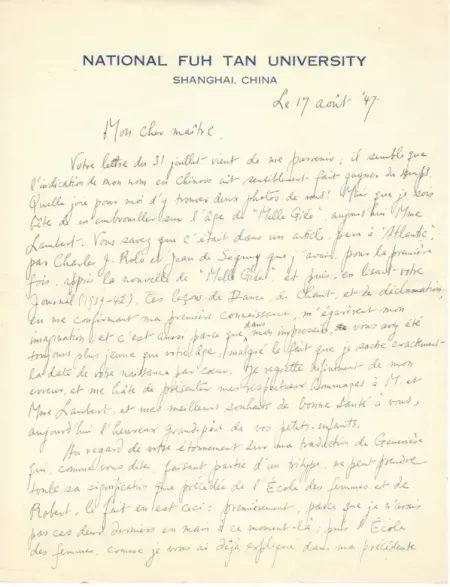 NATIONAL FUH TAN UNIVERSITY
SHANGHAI, CHINA
Le 17 août '47.
Mon cher maître,
Votre lettre du 31 juillet vient de me parvenir, il semble que
l'indication de mon nom en chinois ait sensiblement fait gagner du temps.
Quelle joie pour moi d'y trouver deux photos de vous! Mais que je sois
bête de m'embrouiller sur l'âge de "Melle Gide", aujourd'hui Mme
Lambert. Vous savez que c'était dans un article paru à "Atlantic",
par Charles J. Rolo en Jean de que j'avais pour la première
fois appris la nouvelle de "Melle Gide", et puis, en lisant votre
Journal (1939-42), ces leçons de Danse, de Chant, et de déclamation,
en me confirmant ma première connaissance, m'égarèrent mon
imagination et c'est aussi parce que, dans mon impression, vous avez été
toujours plus jeune que votre âge, malgré le fait que je sache exactement
la date de votre naissance par cœur. Je regrette infiniment de mon
erreur, et me hâte de présenter mes respectueux hommages à M. et
Mme Lambert, et mes meilleurs souhaits de bonne santé à vous,
aujourd'hui l'heureux grand-père de vos petits-enfants.
Au regard de votre étonnement sur ma traduction de Geneviève
qui, comme vous dites, faisant partie d'un trilogie, ne peut prendre
toute sa signification que précédée de l'École des femmes et de
Robert, le fait en est ceci: premièrement, parce que je n'avais
pas ces deux derniers en main à ce moment-là; puis l'École
des femmes, comme je vous ai déjà expliqué dans ma précédente